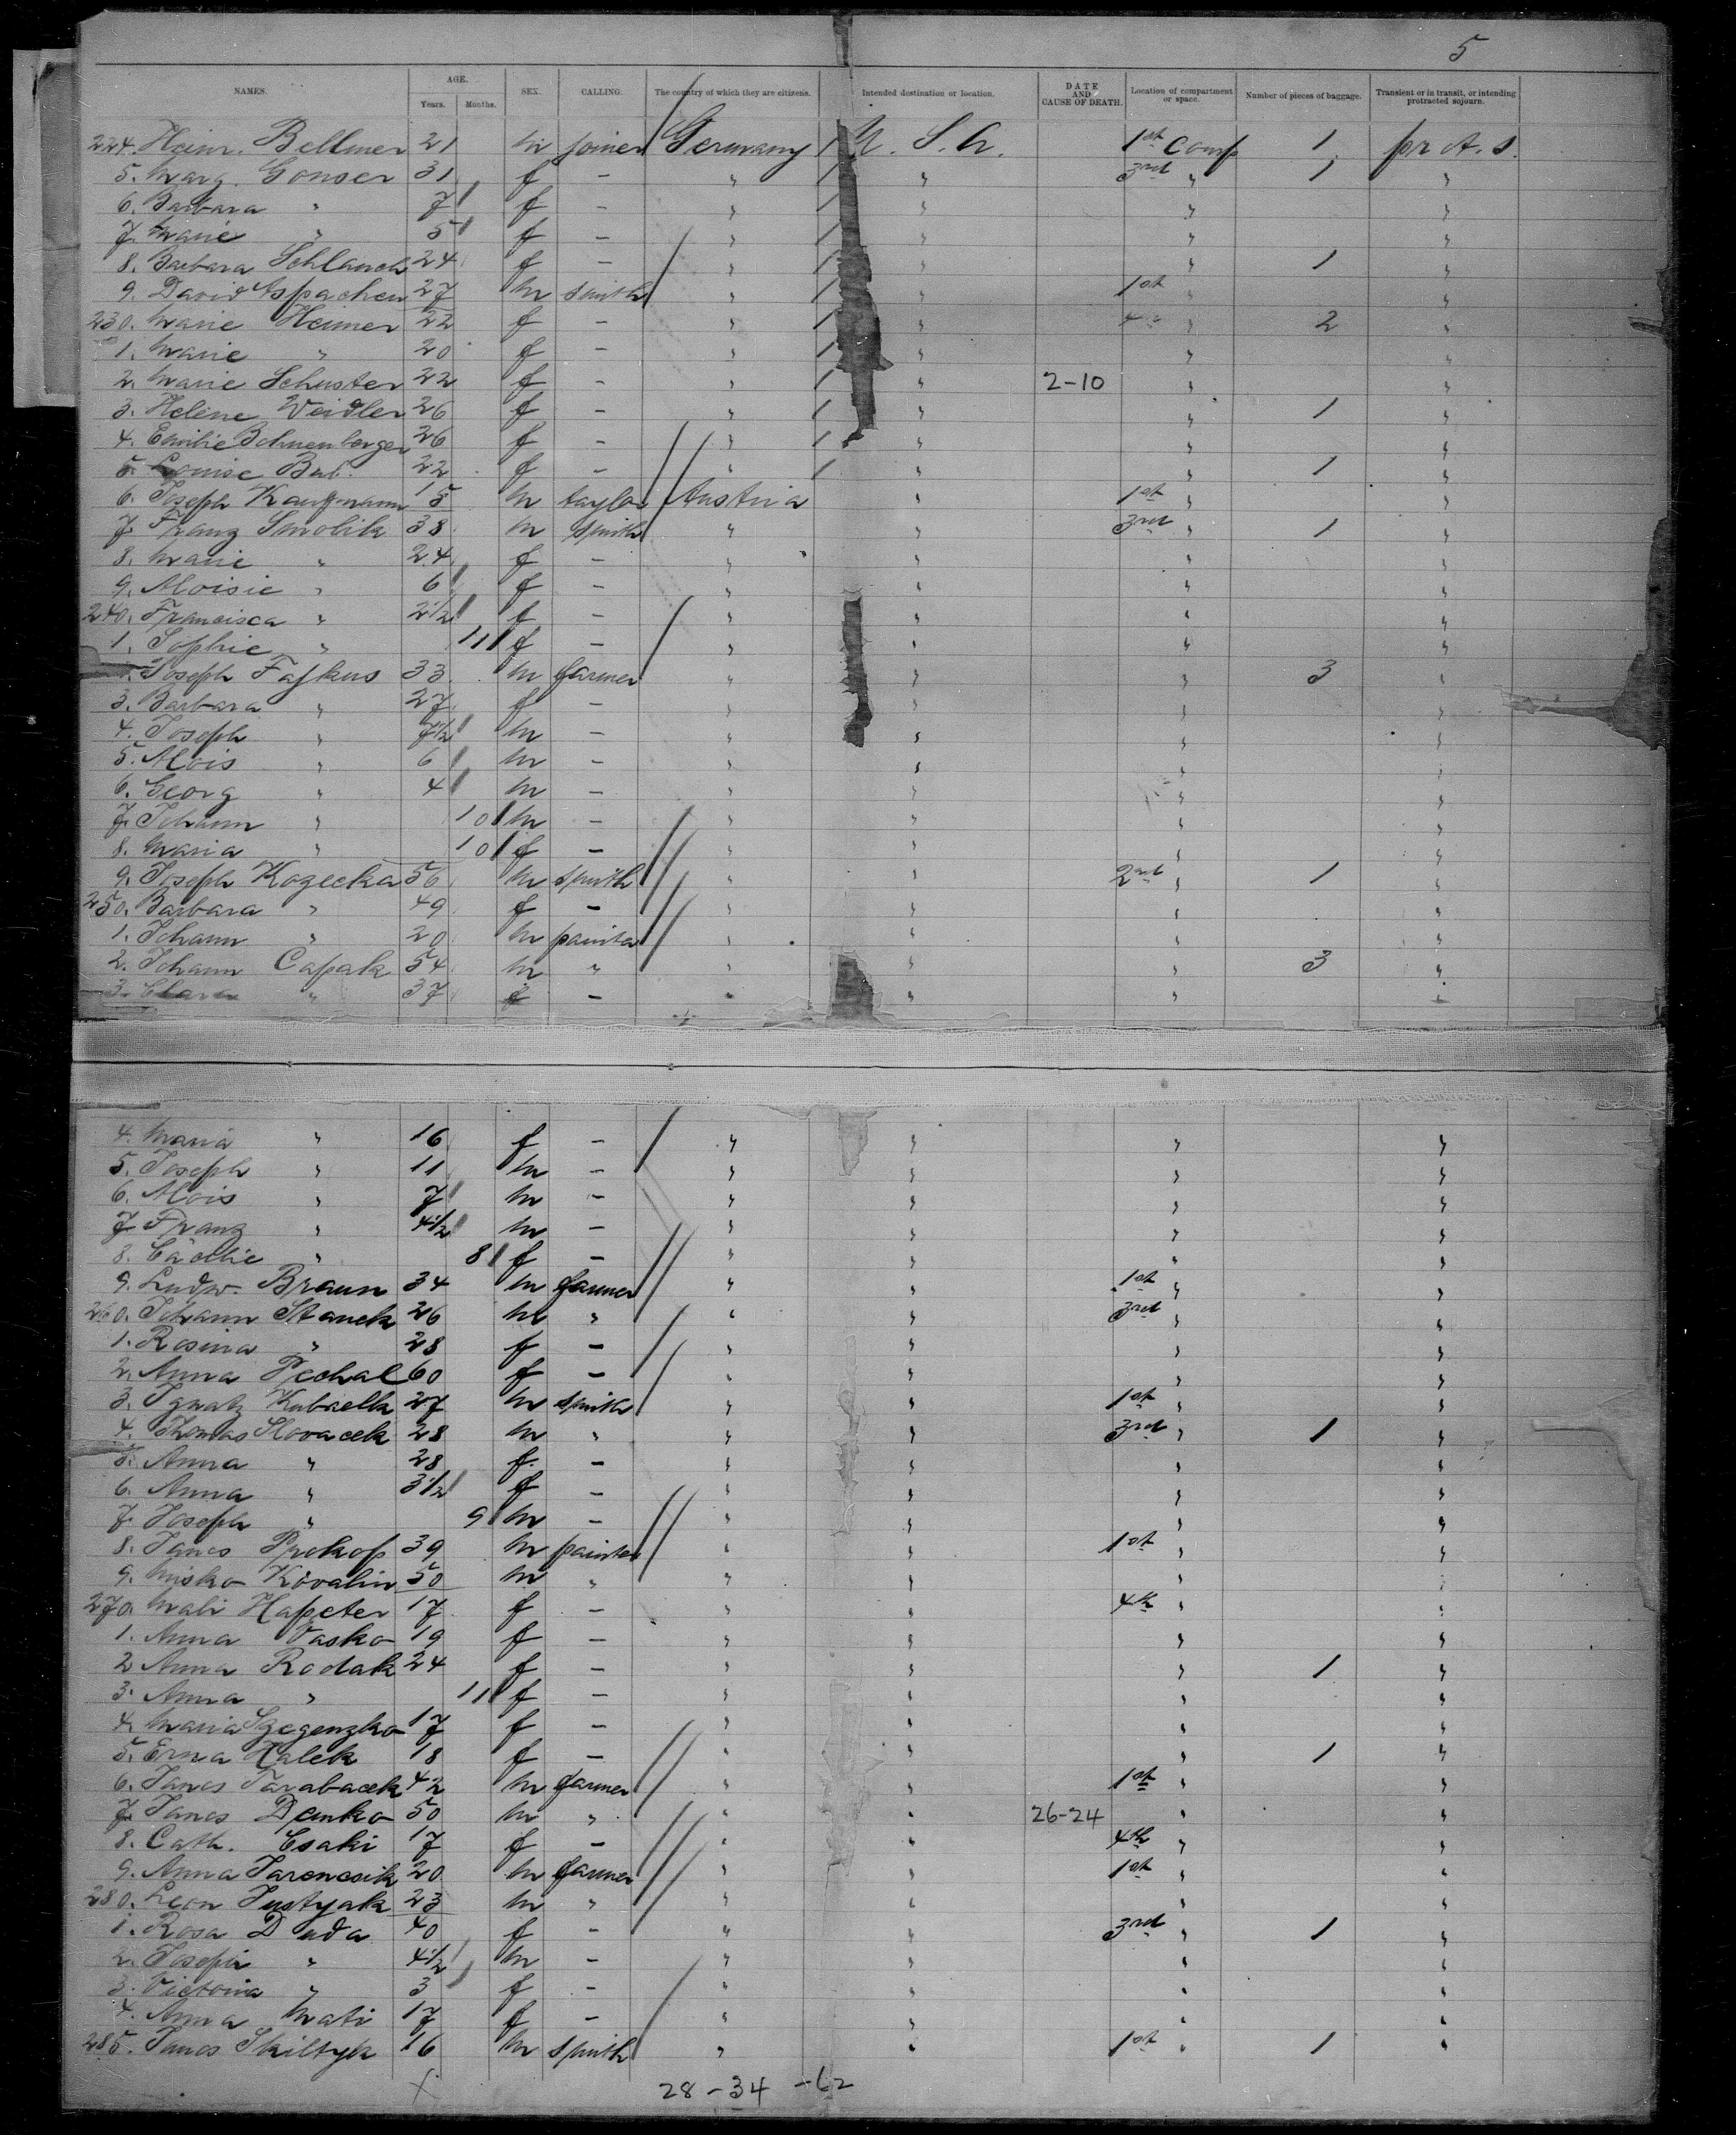 5
NAMES. AGE. Years. Months. SEX. CALLING. The country of which they are citizens. Intended destination or location. DATE AND CAUSE OF DEATH. Location of compartment or space. Number of pieces of baggage. Transient or in transit, or intending protracted sojourn.
224. Heinr. Bellmer 21 m joiner Germany 1 U. S. A. 1st Comp 1 pr A. S.
5. Marg. Gonser 31 f - " 1 " 3rd " 1 "
6. Barbara " 7 f - " 1 " " "
7. Marie " 5 f - " 1 " " "
8. Barbara Schlauch 24 f - " 1 " " 1 "
9. David Aspacher 27 m smith " 1 " 1st " "
230. Marie Heimer 22 f - " 1 " 4th " 2 "
1. Marie " 20 f - " 1 " " "
2. Marie Schuster 22 f - " 1 " 2-10 " "
3. Helene Weidler 26 f - " 1 " " 1 "
4. Emilie Schnenberger 26 f - " 1 " " "
5. Louise Bub. 22 f - " 1 " " 1 "
6. Joseph Kaufmann 15 m taylor Austria " 1st " "
7. Franz Smolik 38 m smith " " 3rd " 1 "
8. Marie " 24 f - " " " "
9. Aloisie " 6 f - " " " "
240. Francisca " 2 1/2 f - " " " "
1. Sophie " 11 f - " " " "
Joseph Fajkus 33 m farmer " " " 3 "
3. Barbara " 27 f - " " " "
4. Joseph " 7 1/2 m - " " " "
5. Alois " 6 m - " " " "
6. Georg " 4 m - " " " "
7. Johann " 10 m - " " " "
8. Maria " 10 f - " " " "
9. Joseph Kozecka 56 m smith " " 2nd " 1 "
250. Barbara " 49 f - " " " "
1. Johann " 20 m painter " " " "
2. Johann Capak 54 m " " " " 3 "
3. Clara " 37 f - " " " "
4. Maria " 16 f - " " " "
5. Joseph " 11 m - " " " "
6. Alois " 7 m - " " " "
7. Franz " 4 1/2 m - " " " "
8. Cäcilie " 8 f - " " " "
9. Ludw. Braun 34 m farmer " " 1st " "
260. Johann Stanek 26 m " " " 3rd " "
1. Rosina " 28 f - " " " "
2. Anna Pechal 60 f - " " " "
3. Ignatz Kubselka 27 m smith " " 1st " "
4. Thomas Slovacek 28 m " " " 3rd " 1 "
5. Anna " 28 f - " " " "
6. Anna " 3 1/2 f - " " " "
7. Joseph " 9 m - " " " "
8. Janos Prokop 39 m painter " " 1st " "
9. Misko Kovalin 50 m " " " " "
270. Mali Hapeter 17 f - " " 4th " "
1. Anna Vasko 19 f - " " " "
2 Anna Rodak 24 f - " " " 1 "
3. Anna " 11 f - " " " "
4. Maria Szegenzko 17 f - " " " "
5. Erna Halek 18 f - " " " 1 "
6. Janos Tarabacek 42 m farmer " " 1st " "
7. Janos Demko 50 m " " " 26-24 " "
8. Cath. Csaki 17 f - " " 4th " "
9. Anna Tarencsik 20 m farmer " " 1st " "
280. Leon Justyak 23 m " " " " "
1. Rosa Duda 40 f - " " 3rd " 1 "
2. Joseph " 4 1/2 m - " " " "
3. Victoria " 3 f - " " " "
4. Anna Mati 17 f - " " " "
285. Janos Skiltyk 16 m smith " " 1st " 1 "
x 28-34 -62